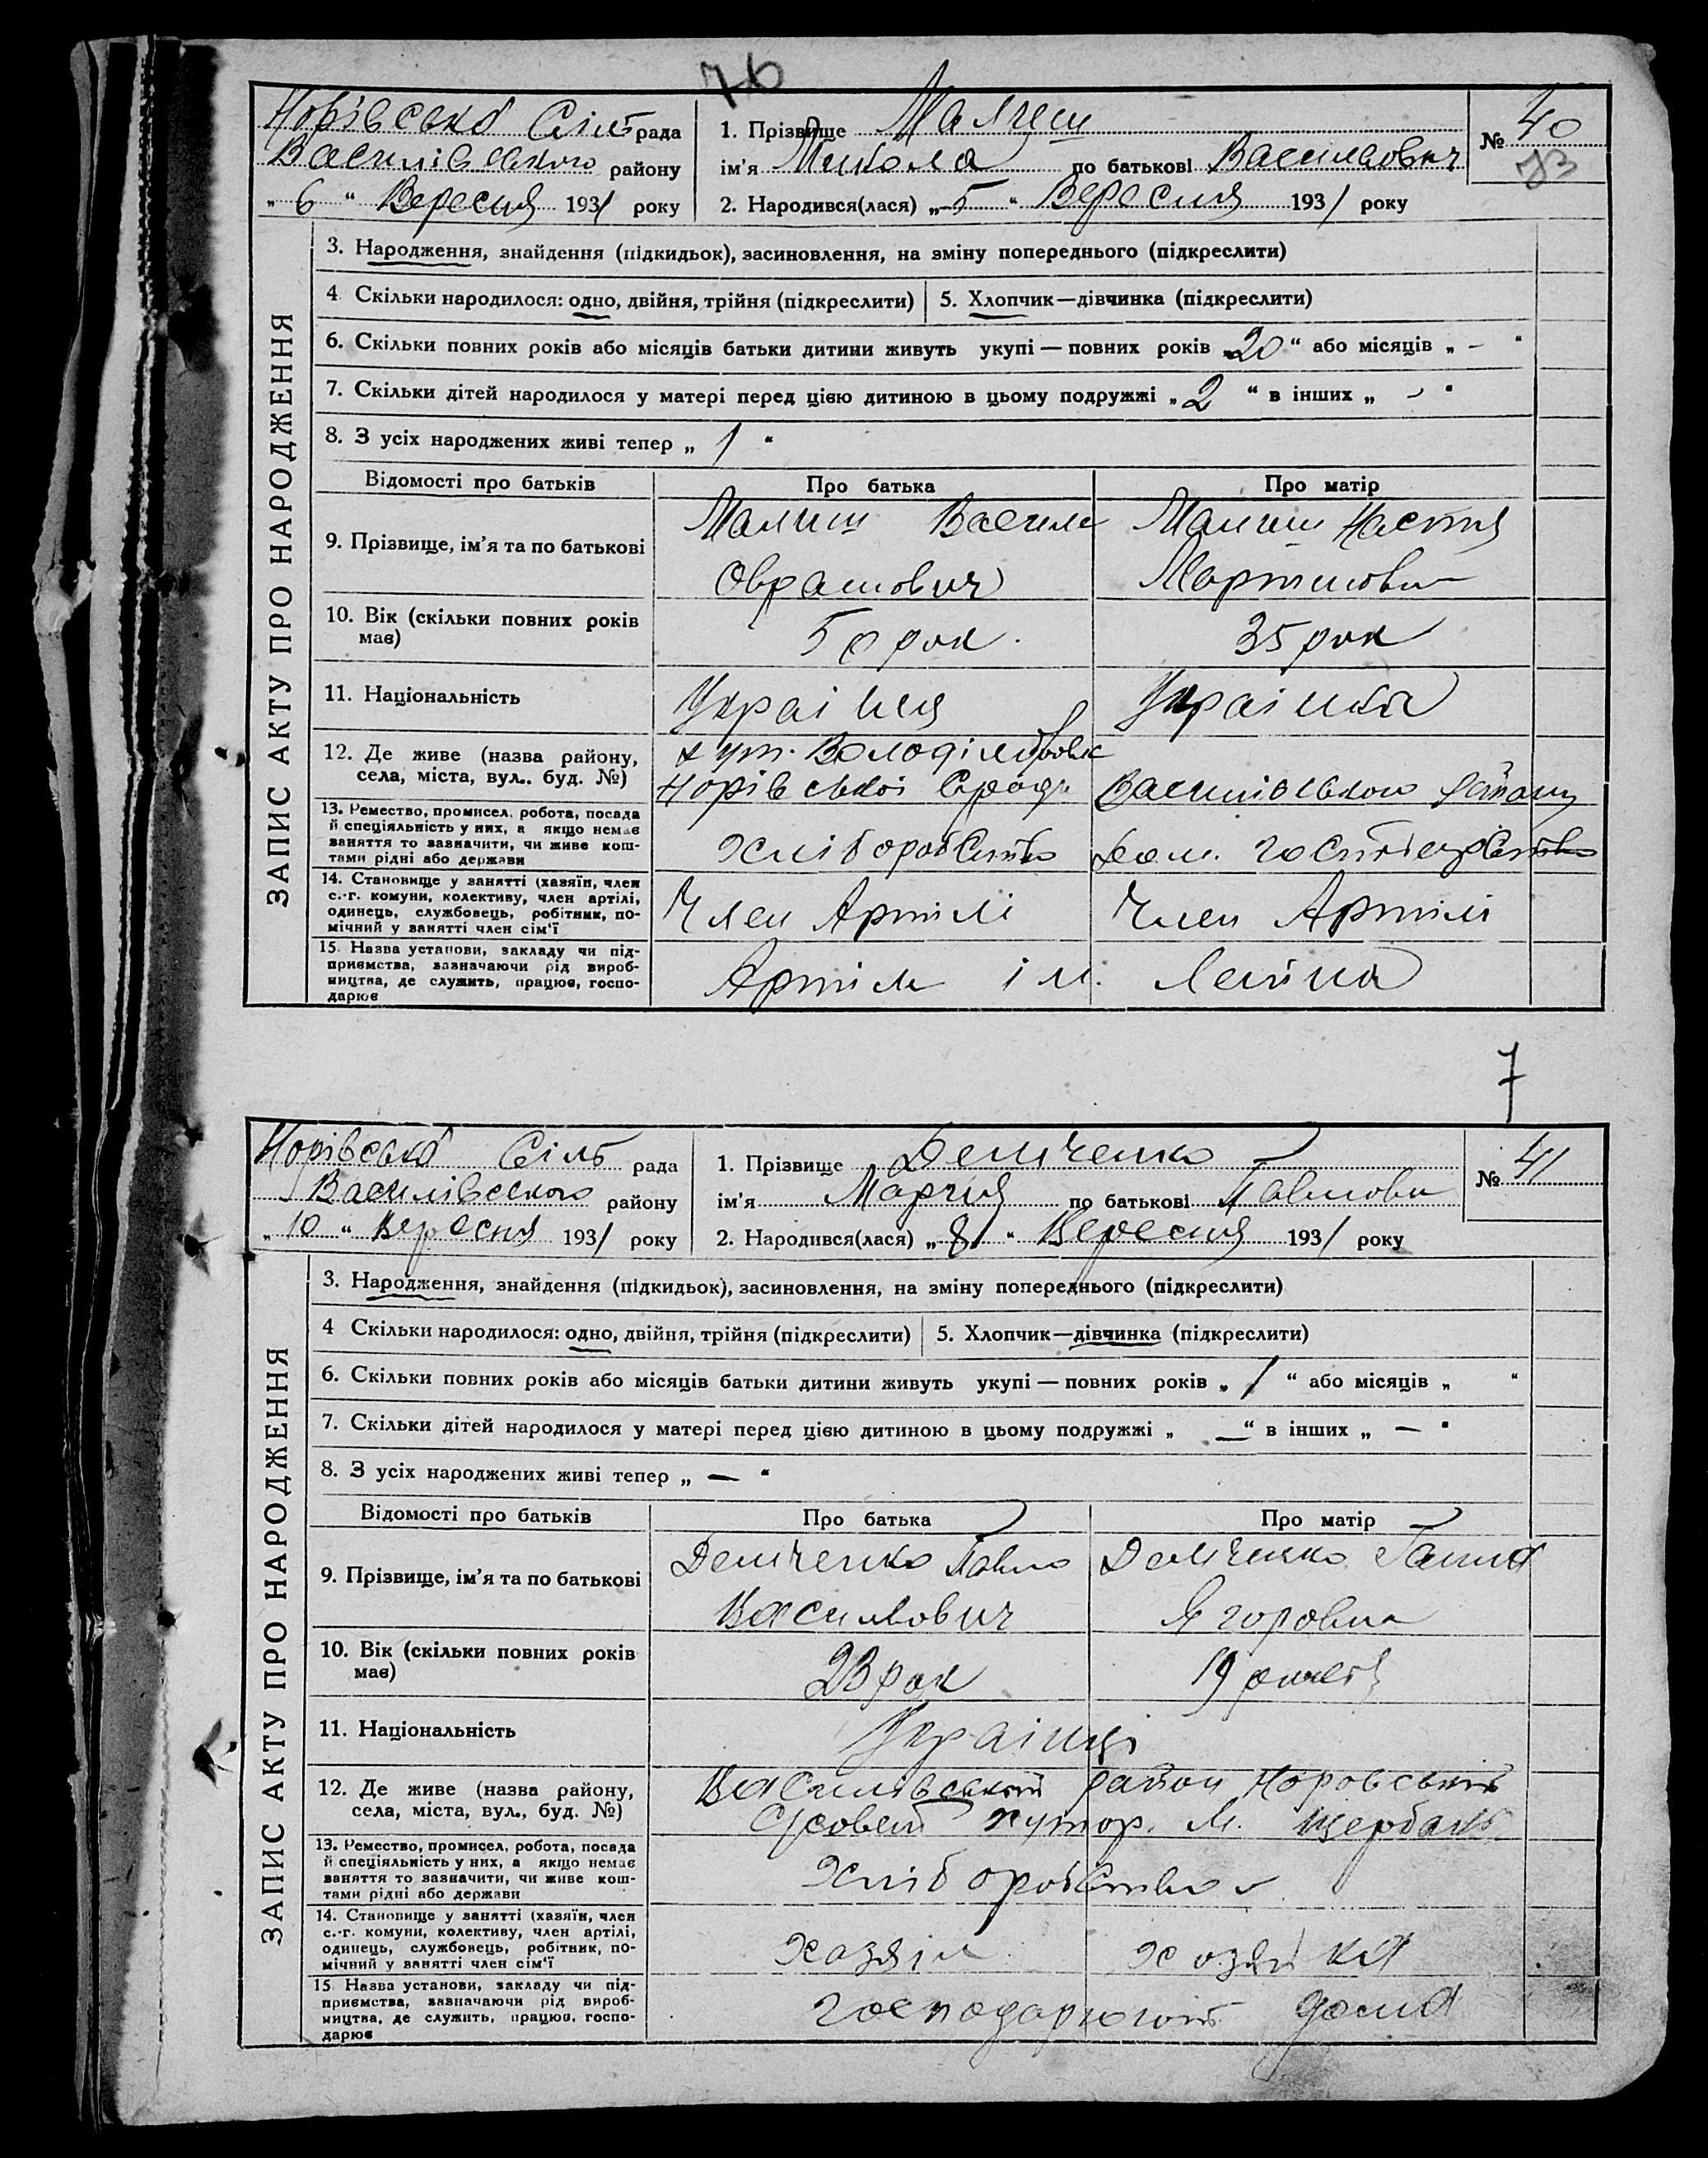 76
Норівська Сіль рада
Василівського району
„ 6 “ Вересня 1931 року
1. Прізвище Малиш
ім'я Микола по батькові Васильович
2. Народився(лася) „ 5 “ Вересня 1931 року
№ 40
73
ЗАПИС АКТУ ПРО НАРОДЖЕННЯ
3. Народження, знайдення (підкидьок), засиновлення, на зміну попереднього (підкреслити)
4 Скільки народилося: одно, двійня, трійня (підкреслити) 5. Хлопчик—дівчинка (підкреслити)
6. Скільки повних років або місяців батьки дитини живуть укупі — повних років „ 20 “ або місяців „ - “
7. Скільки дітей народилося у матері перед цією дитиною в цьому подружжі „ 2 “ в інших „ - “
8. З усіх народжених живі тепер „ 1 “
Відомості про батьків Про батька Про матір
9. Прізвище, ім'я та по батькові
Малиш Василь
Малиш Настя
Мартиновна
10. Вік (скільки повних років
має)
50 рок.
35 рок
11. Національність
Українка
12. Де живе (назва району,
села, міста, вул.. буд. №)
хут.
Норівської С/ради Василівського району
13. Ремество, промисел, робота, посада
й спеціяльність у них, а якщо немає
заняття то зазначити, чи живе кош-
тами рідні або держави
Хліборобство
дом. господарство
14. Становище у занятті (хазяїн, член
с.-г. комуни, колективу, член артілі,
одинець, службовець, робітник, по-
мічний у занятті член сім'ї
Член Артілі
Член Артілі
15. Назва установи, закладу чи під-
приємства, зазначаючи рід вироб-
ництва, де служить, працює, госпо-
дарює
Артіль ім. Леніна
7
Норівська Сіль рада
Василівського району
„ 10 “ Вересня 1931 року
1. Прізвище Демченко
ім'я Марія по батькові Павловн
2. Народився(лася) „ 8 “ Вересня 1931 року
№ 41
ЗАПИС АКТУ ПРО НАРОДЖЕННЯ
3. Народження, знайдення (підкидьок), засиновлення, на зміну попереднього (підкреслити)
4 Скільки народилося: одно, двійня, трійня (підкреслити) 5. Хлопчик—дівчинка (підкреслити)
6. Скільки повних років або місяців батьки дитини живуть укупі — повних років „ 1 “ або місяців „ “
7. Скільки дітей народилося у матері перед цією дитиною в цьому подружжі „ — “ в інших „ — “
8. З усіх народжених живі тепер „ — “
Відомості про батьків Про батька Про матір
9. Прізвище, ім'я та по батькові
Демченко Павло
Васильович
Демченко Ганна
Ягоровна
10. Вік (скільки повних років
має)
23 рок
19
11. Національність
Українці
12. Де живе (назва району,
села, міста, вул., буд. №)
Василівський район Норовський
С/совет хутор. М. Щербаки
13. Ремество, промисел, робота, посада
й спеціяльність у них, а якщо немає
заняття то зазначити, чи живе кош-
тами рідні або держави
Хліборобство
14. Становище у занятті (хазяїн, член
с.-г. комуни, колективу, член артілі,
одинець, службовець, робітник, по-
мічний у занятті член сім'ї
хазяїн
хозяйка
15 Назва установи, закладу чи під-
приємства, зазначаючи рід вироб-
ництва, де служить, працює, госпо-
дарює
господарюють дома